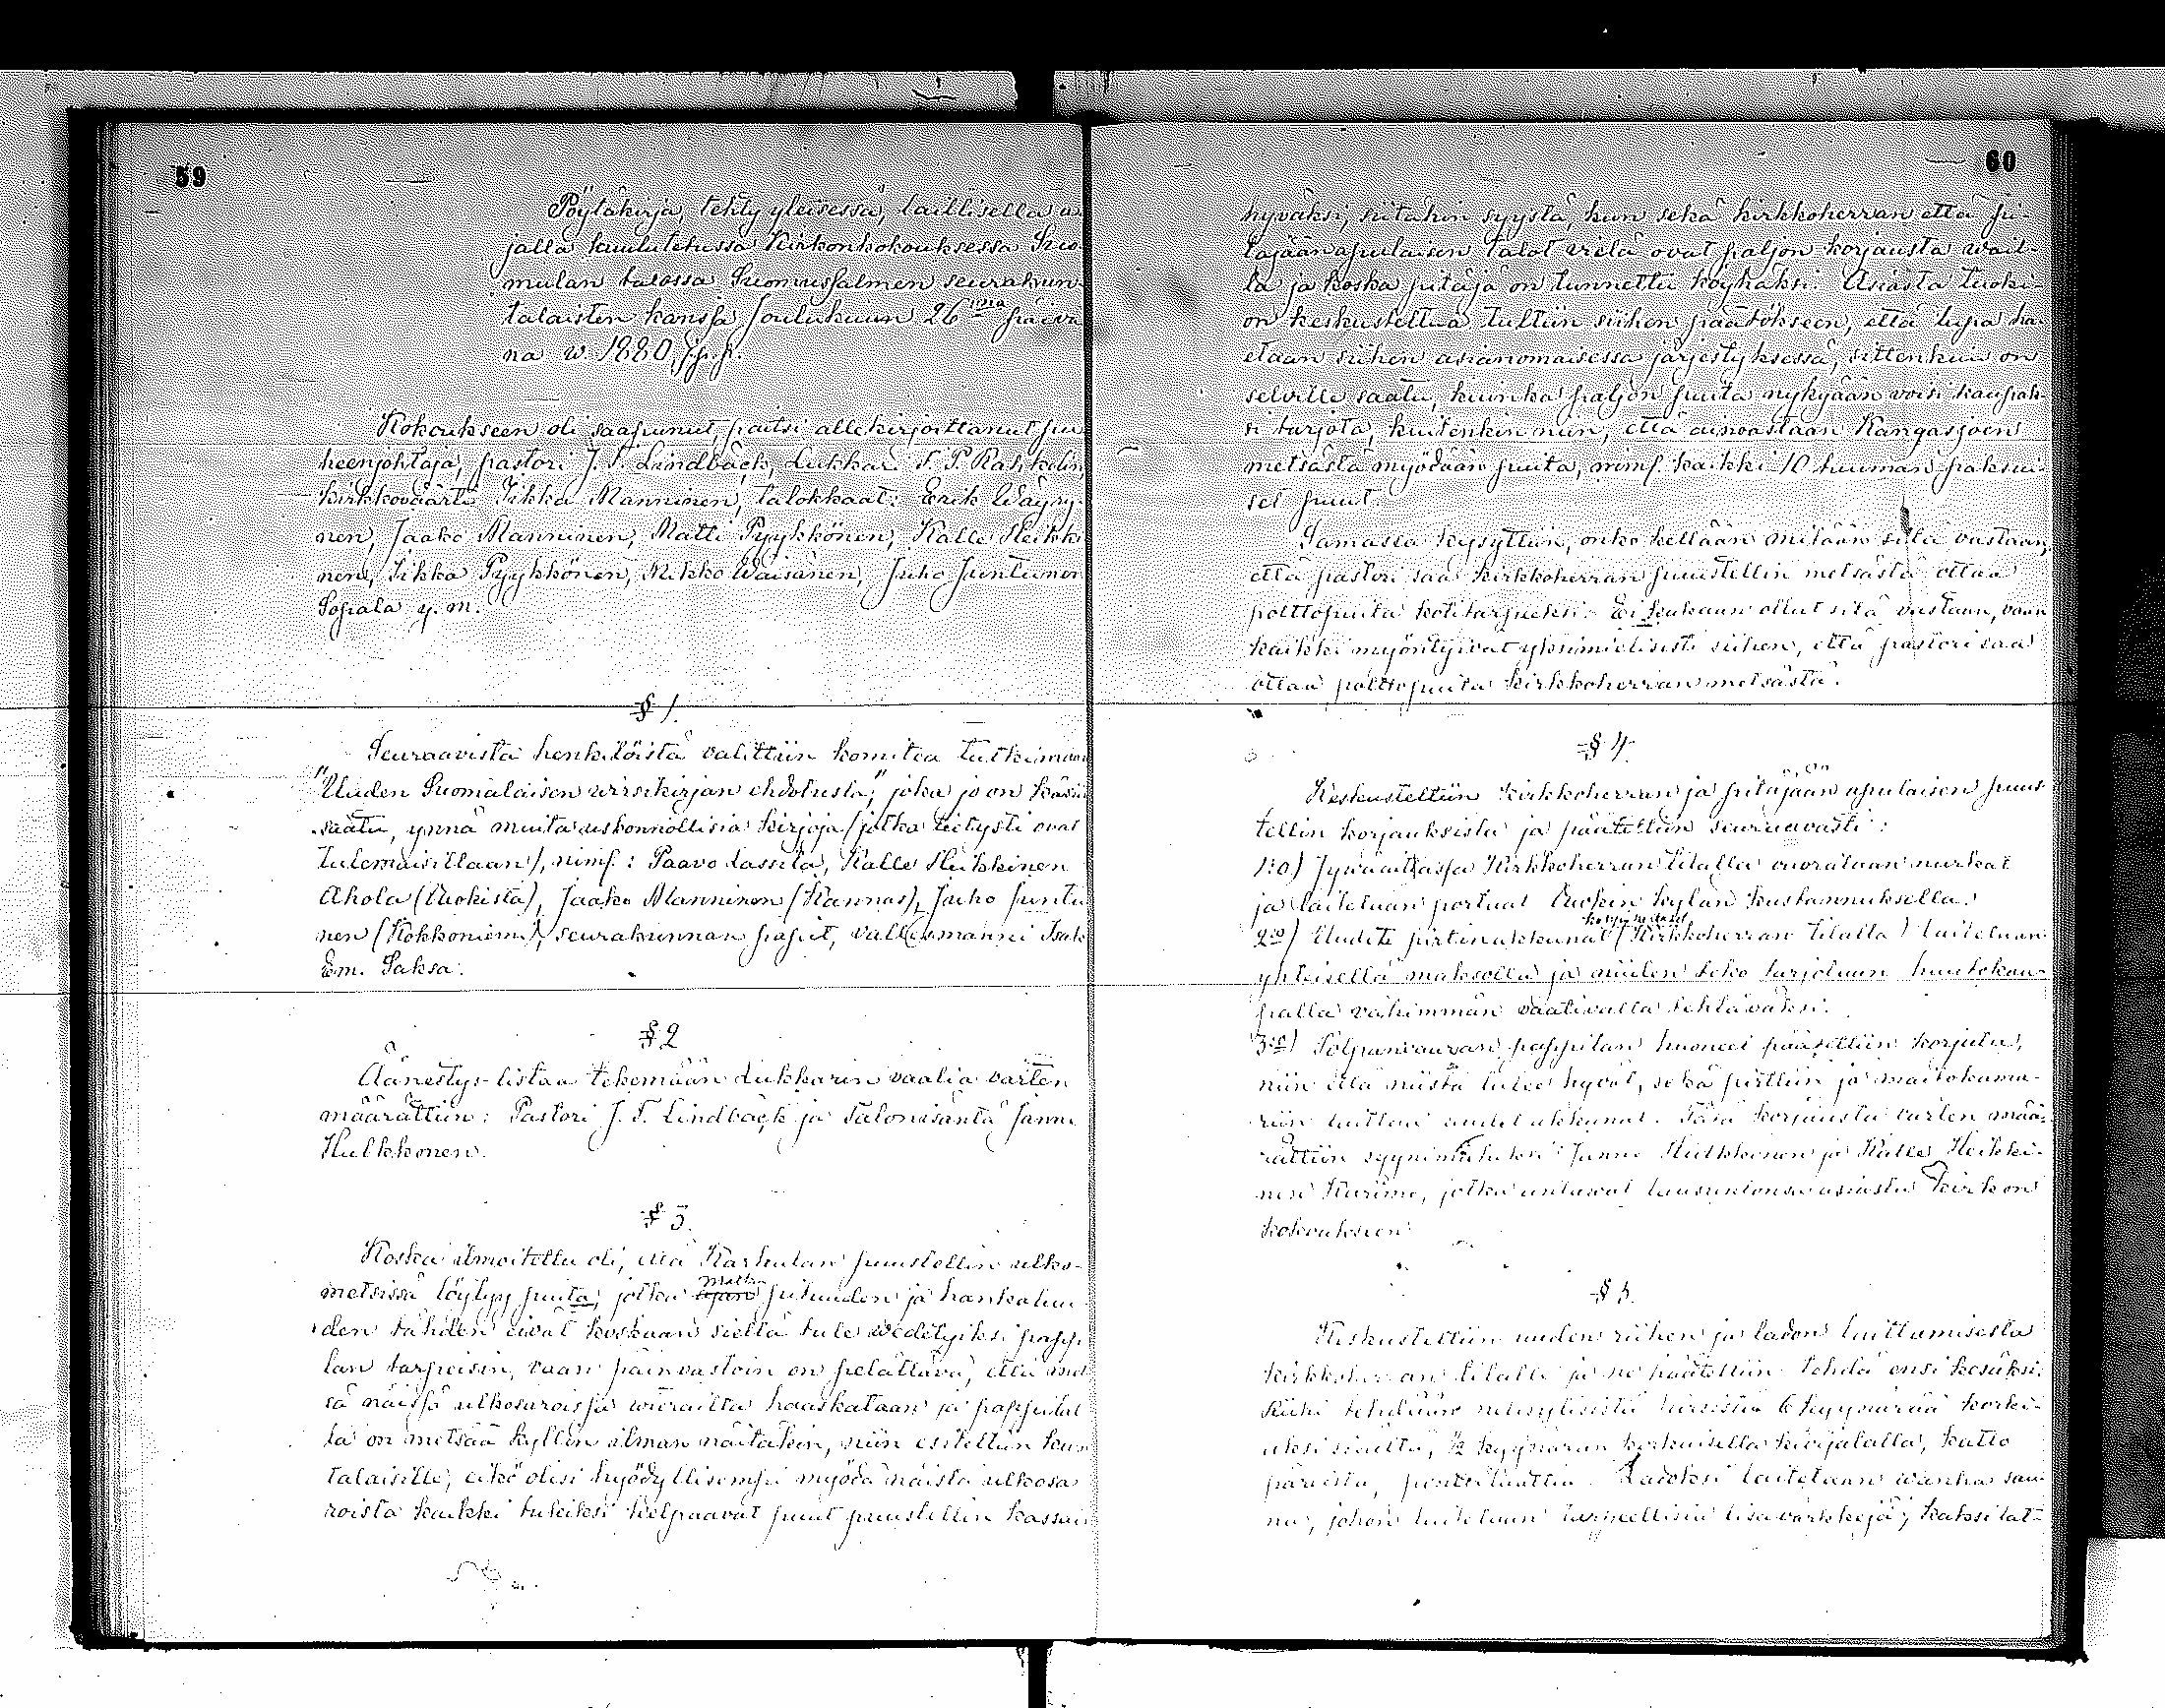 59
Pöytäkirja, tehty yleisessä, laillisella a-
jalla kuulutetussa Kirkonkokouksessa Suo-
mulan talossa Suomussalmen seurakun-
talaisten kanssa Joulukuun 26ma päivä
nä w. 1880, j.p.p.
Kokoukseen oli saapunut, paitsi allekirjoittanut pu
heenjohtaja, pastori J. F. Lindbäck, Lukkari F. P. Raskolin,
kirkkoväärti Iikka Manninen, talokkaat: Erik Wäyry-
nen, Jaako Manninen, Matti Pyykkönen, Kalle Heikki
nen, Iikka Pyykkönen, Mikko Waisänen, Juho Juntunen
Sopala y. m.
§ 1.
Seuraavista henkilöistä valittiin komitea tutkimaan
"Uuden Suomalaisen virsikirjan ehdotusta," joka jo on käsiin
saatu, ynnä muita uskonnollisia kirjoja (jotka tietysti ovat
tulemaisillaan), nimf: Paavo Lassila, Kalle Heikkinen
Ahola (Ruokista), Jaako Manninen (Kannas), Juho Juntu
nen (Kokkoniemi), seurakunnan papit, vallesmanni Isak
Em. Saksa.
§ 2
Äänestys-listaa tekemään Lukkarin vaalia varten
määrättiin: Pastori J. F. Lindbäck ja Talonisäntä Janne
Hulkkonen.
§ 3.
Koska ilmoitettu oli, että Karhulan puustellin ulko-
metsissä löytyy puita, jotka ajan matkan pituuden ja hankaluu
den tähden eivät koskaan sieltä tule vedetyiksi pappi
lan tarpeisin, vaan päinvastoin on pelättävä, että met
sä näissä ulkosaroissa vierailta haaskataan ja pappilal
la on metsää kyllin ilman näitäkin, niin esiteltiin kun
talaisille, eikö olisi hyödyllisempi myödä näistä ulkosa
roista kaikki tukiksi kelpaavat puut puustellin kassan
60
hyväksi, sitäkin syystä, kun sekä kirkkoherran että pi-
täjäänapulaisen talot vielä ovat paljon korjausta vail-
la ja koska pitäjä on tunnettu köyhäksi. Asiasta tuoki-
on keskusteltua tultiin siihen päätökseen, että lupa ha-
etaan siihen asianomaisessa järjestyksessä, sittenkuin on
selville saatu, kuinka paljon puita nykyään voisi kaupak-
si tarjota, kuitenkin niin, että ainoastaan Kangasjoen
metsästä myödään puita, nimf. kaikki 10 tuuman paksui-
set puut.
Samasta kysyttiin, onko kellään mitään sitä vastaan,
että pastori saa kirkkoherran puustellin metsästä ottaa
polttopuita kotitarpueksi. Ei kukaan ollut sitä vastaan, vaan
kaikki myöntyivät yksimielisesti siihen, että pastori saa
ottaa polttopuita kirkkoherran metsästä.
§ 4.
Keskusteltiin kirkkoherran ja pitäjään apulaisen puus-
tellin korjauksista ja päätettiin seuraavasti:
1:o) Jyväaitassa Kirkkoherran tilalla vuorataan nurkat
ja laitetaan portaat Ruokin kylän kustannuksella.
2:o) Uudet pirtinakkunat (Kirkkoherran tilalla) laitetaan
yhteisellä maksolla ja niiden teko tarjotaan huutokau-
palla vähimmän vaativalla tehtäväksi.
3:o) Pölhänvaaran pappilan huoneet päätettiin korjata,
niin että niistä tulee hyvät, sekä pirttiin ja maitokama-
riin laittaa uudet akkunat. Tätä korjausta varten mää-
rättiin syynimiehiksi Janne Hulkkonen ja Kalle Heikki-
nen Kurimo, jotka antavat lausuntonsa asiasta Kirkon
kokoukseen.
§ 5.
Keskusteltiin uuden riihen ja ladon laittamisesta
kirkkoherran tilalle ja ne päätettiin tehdä ensi kesäksi.
Riihi tehdään nelisylisistä hirsistä 6 kyynärää korke-
aksi sisältä, ½ kyynärän korkuisella kivijalalla, katto
päreistä, lattia. Ladoksi laitetaan wanha sau-
na, johon laitetaan tarpeellisia lisävärkkejä, kaksi lat-